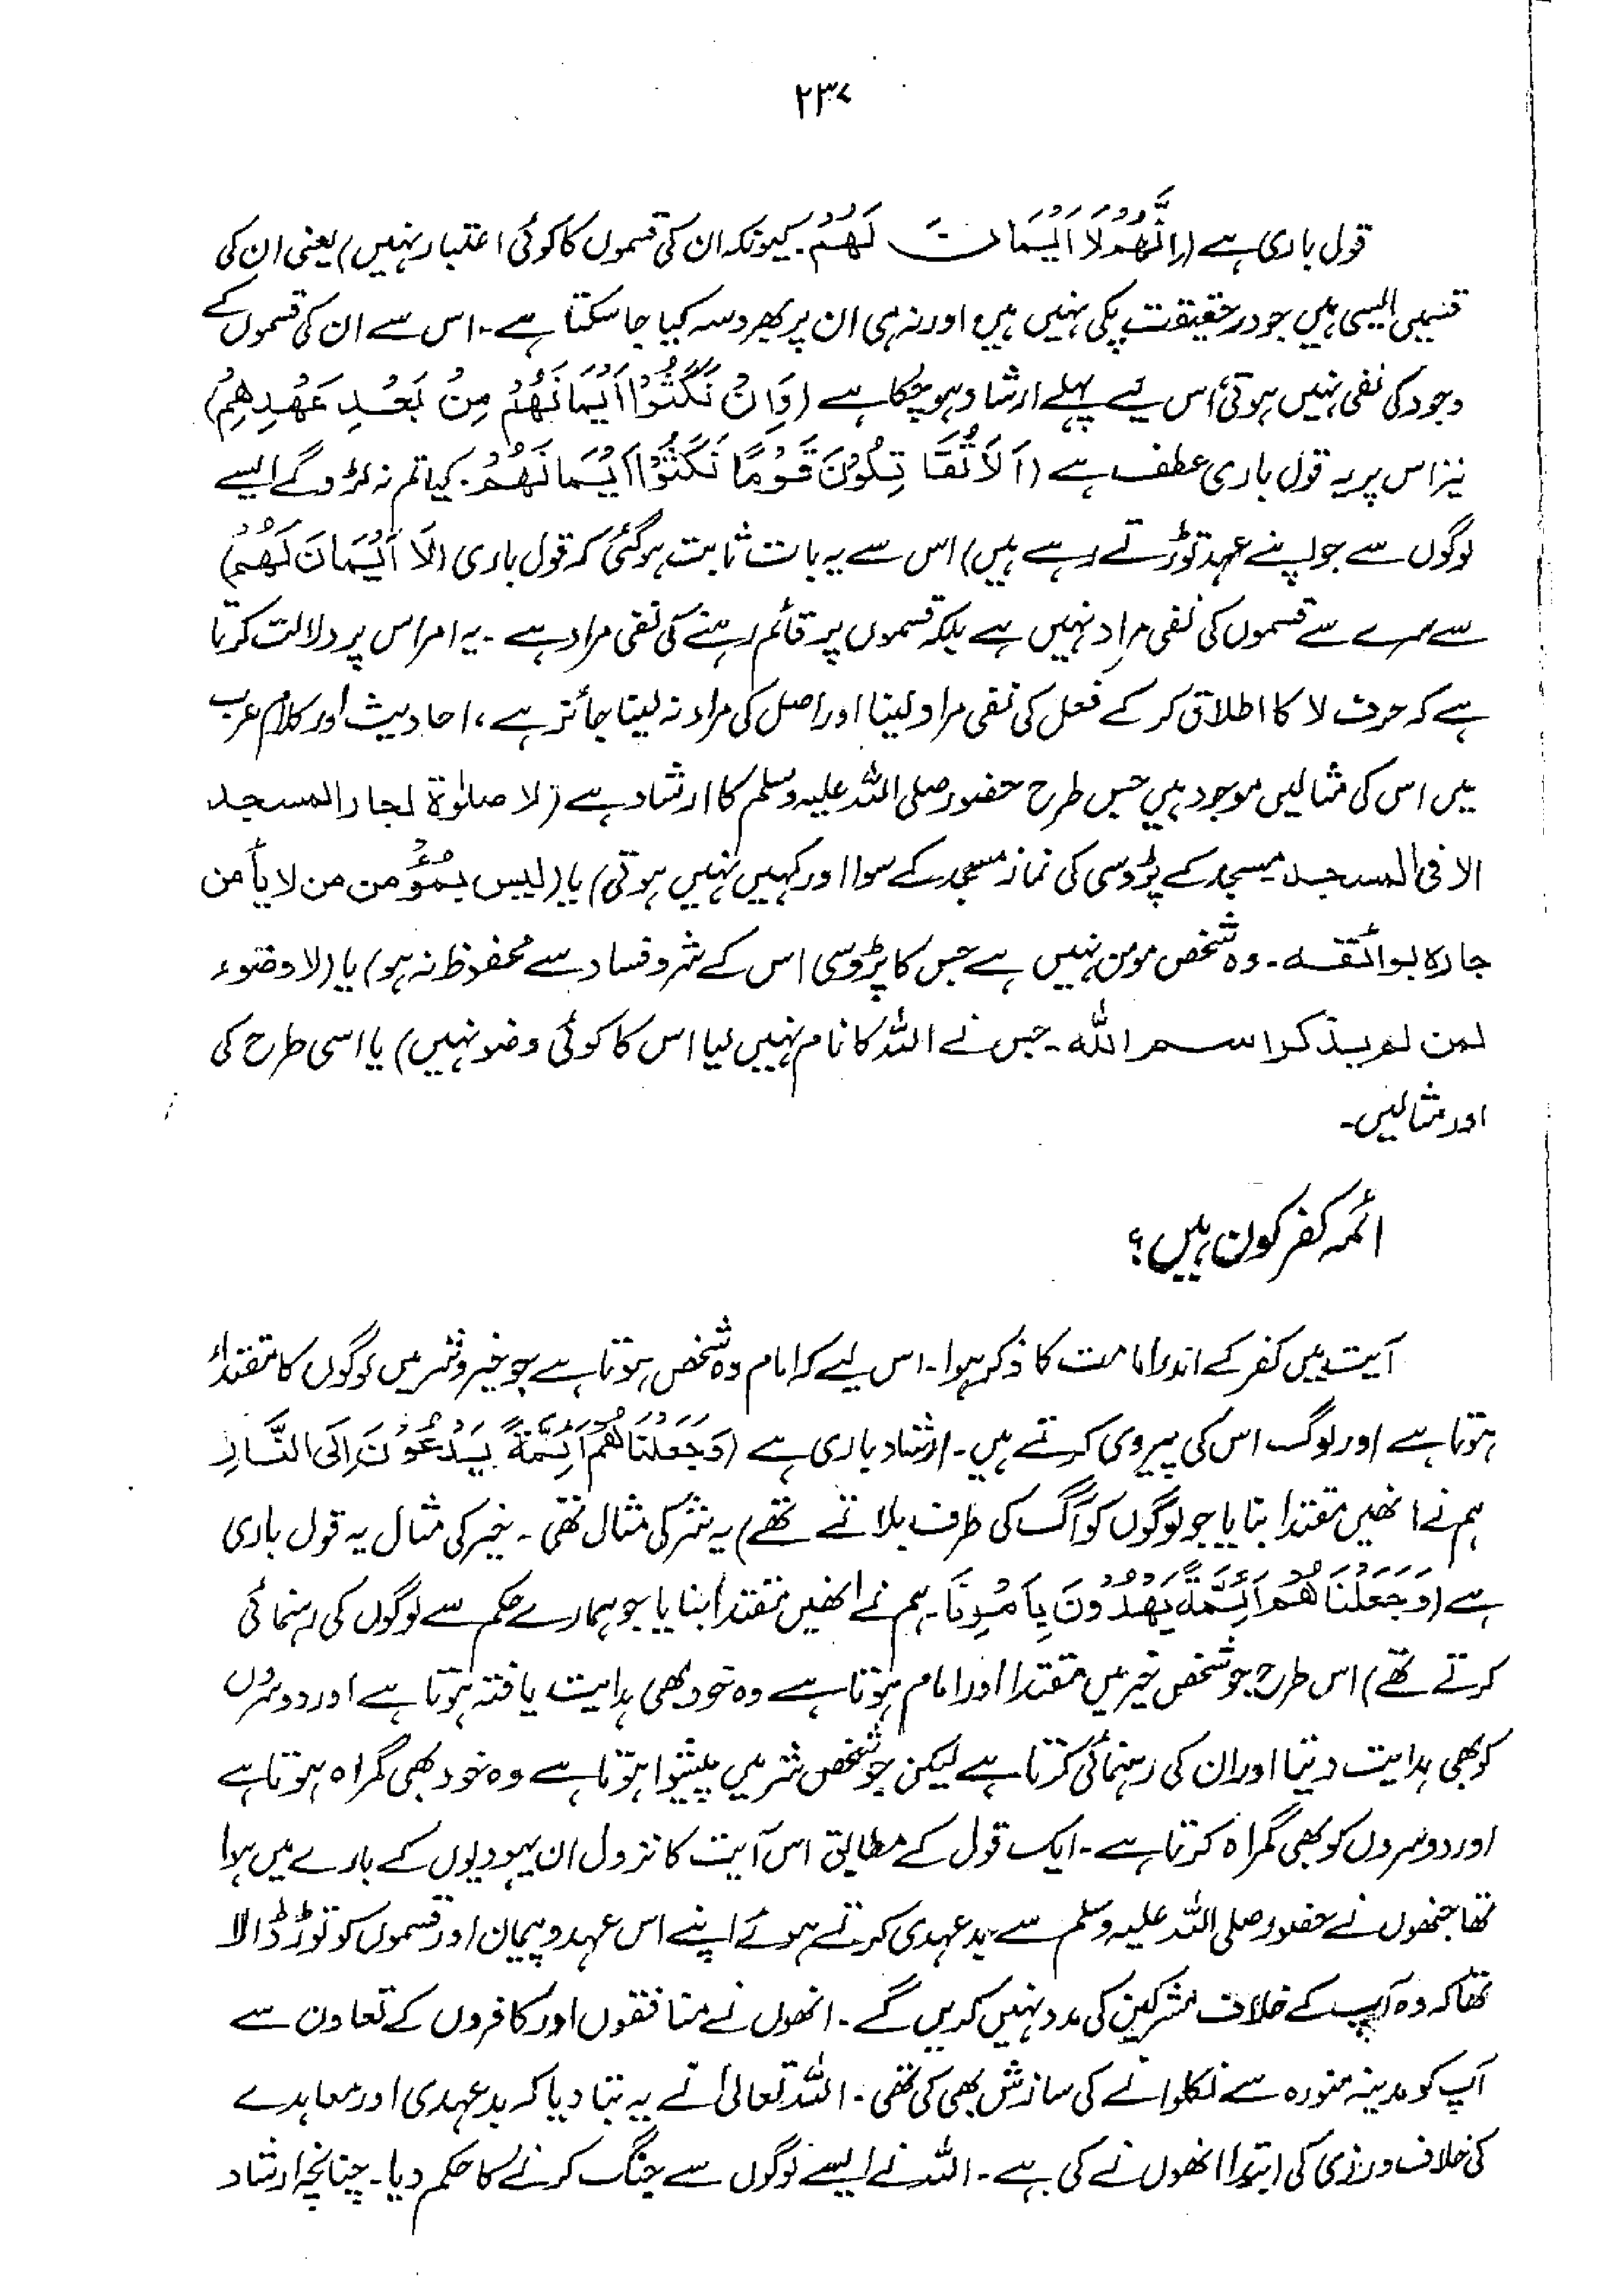 ۲۳۷
قول باری ہے (اِنَّهُمْ لَا اَيْمَانَ لَهُمْ۔ کیونکہ ان کی قسموں کا کوئی اعتبار نہیں) یعنی ان کی
قسمیں ایسی ہیں جو درحقیقت پکی نہیں ہیں اور نہ ہی ان پر بھروسہ کیا جا سکتا ہے۔ اس سے ان کی قسموں کے
وجود کی نفی نہیں ہوتی، اس لیے پہلے ارشاد ہو چکا ہے (وَاِنْ نَكَثُوْا اَيْمَانَهُمْ مِنْ بَعْدِ عَهْدِهِمْ)
نیز اس پر یہ قول باری عطف ہے (اَلَا تُقَاتِلُوْنَ قَوْمًا نَكَثُوْا اَيْمَانَهُمْ۔ کیا تم نہ لڑو گے ایسے
لوگوں سے جو اپنے عہد توڑتے رہے ہیں) اس سے یہ بات ثابت ہو گئی کہ قول باری (لَا اَيْمَانَ لَهُمْ)
سے سرے سے قسموں کی نفی مراد نہیں ہے بلکہ قسموں پر قائم رہنے کی نفی مراد ہے۔ یہ امر اس پر دلالت کرتا
ہے کہ حرف لا کا اطلاق کر کے فعل کی نفی مراد لینا اور اصل کی مراد نہ لینا جائز ہے، احادیث اور کلام عرب
میں اس کی مثالیں موجود ہیں جس طرح حضور صلی اللہ علیہ وسلم کا ارشاد ہے (لا صلوٰة لجار المسجد
الا فی المسجد مسجد کے پڑوسی کی نماز مسجد کے سوا اور کہیں نہیں ہوتی) یا (لیس بمُؤمن من لا یأمن
جارہ بوائقہ۔ وہ شخص مومن نہیں ہے جس کا پڑوسی اس کے شر و فساد سے محفوظ نہ ہو) یا (لا وضوء
لمن لم یذکر اسم اللہ۔ جس نے اللہ کا نام نہیں لیا اس کا کوئی وضو نہیں) یا اسی طرح کی
اور مثالیں۔
ائمہ کفر کون ہیں؟
آیت میں کفر کے اندر امامت کا ذکر ہوا۔ اس لیے کہ امام وہ شخص ہوتا ہے جو خیر و شر میں لوگوں کا مقتداء
ہوتا ہے اور لوگ اس کی پیروی کرتے ہیں۔ ارشاد باری ہے (وَجَعَلْنَاهُمْ اَئِمَّةً يَدْعُوْنَ اِلَى النَّارِ
ہم نے انھیں مقتدا بنایا جو لوگوں کو آگ کی طرف بلاتے تھے) یہ شر کی مثال تھی۔ خیر کی مثال یہ قول باری
ہے (وَجَعَلْنَاهُمْ اَئِمَّةً يَهْدُوْنَ بِاَمْرِنَا۔ ہم نے انھیں مقتدا بنایا جو ہمارے حکم سے لوگوں کی رہنمائی
کرتے تھے) اس طرح جو شخص خیر میں مقتدا اور امام ہوتا ہے وہ خود بھی ہدایت یافتہ ہوتا ہے اور دوسروں
کو بھی ہدایت دیتا اور ان کی رہنمائی کرتا ہے لیکن جو شخص شر میں پیشوا ہوتا ہے وہ خود بھی گمراہ ہوتا ہے
اور دوسروں کو بھی گمراہ کرتا ہے۔ ایک قول کے مطابق اس آیت کا نزول ان یہودیوں کے بارے میں ہوا
تھا جنھوں نے حضور صلی اللہ علیہ وسلم سے بدعہدی کرتے ہوئے اپنے اس عہد و پیمان اور قسموں کو توڑ ڈالا
تھا کہ وہ آپ کے خلاف مشرکین کی مدد نہیں کریں گے۔ انھوں نے منافقوں اور کافروں کے تعاون سے
آپ کو مدینہ منورہ سے نکلوانے کی سازش بھی کی تھی۔ اللہ تعالیٰ نے یہ بتا دیا کہ بدعہدی اور معاہدے
کی خلاف ورزی کی ابتدا انھوں نے کی ہے۔ اللہ نے ایسے لوگوں سے جنگ کرنے کا حکم دیا۔ چنانچہ ارشاد